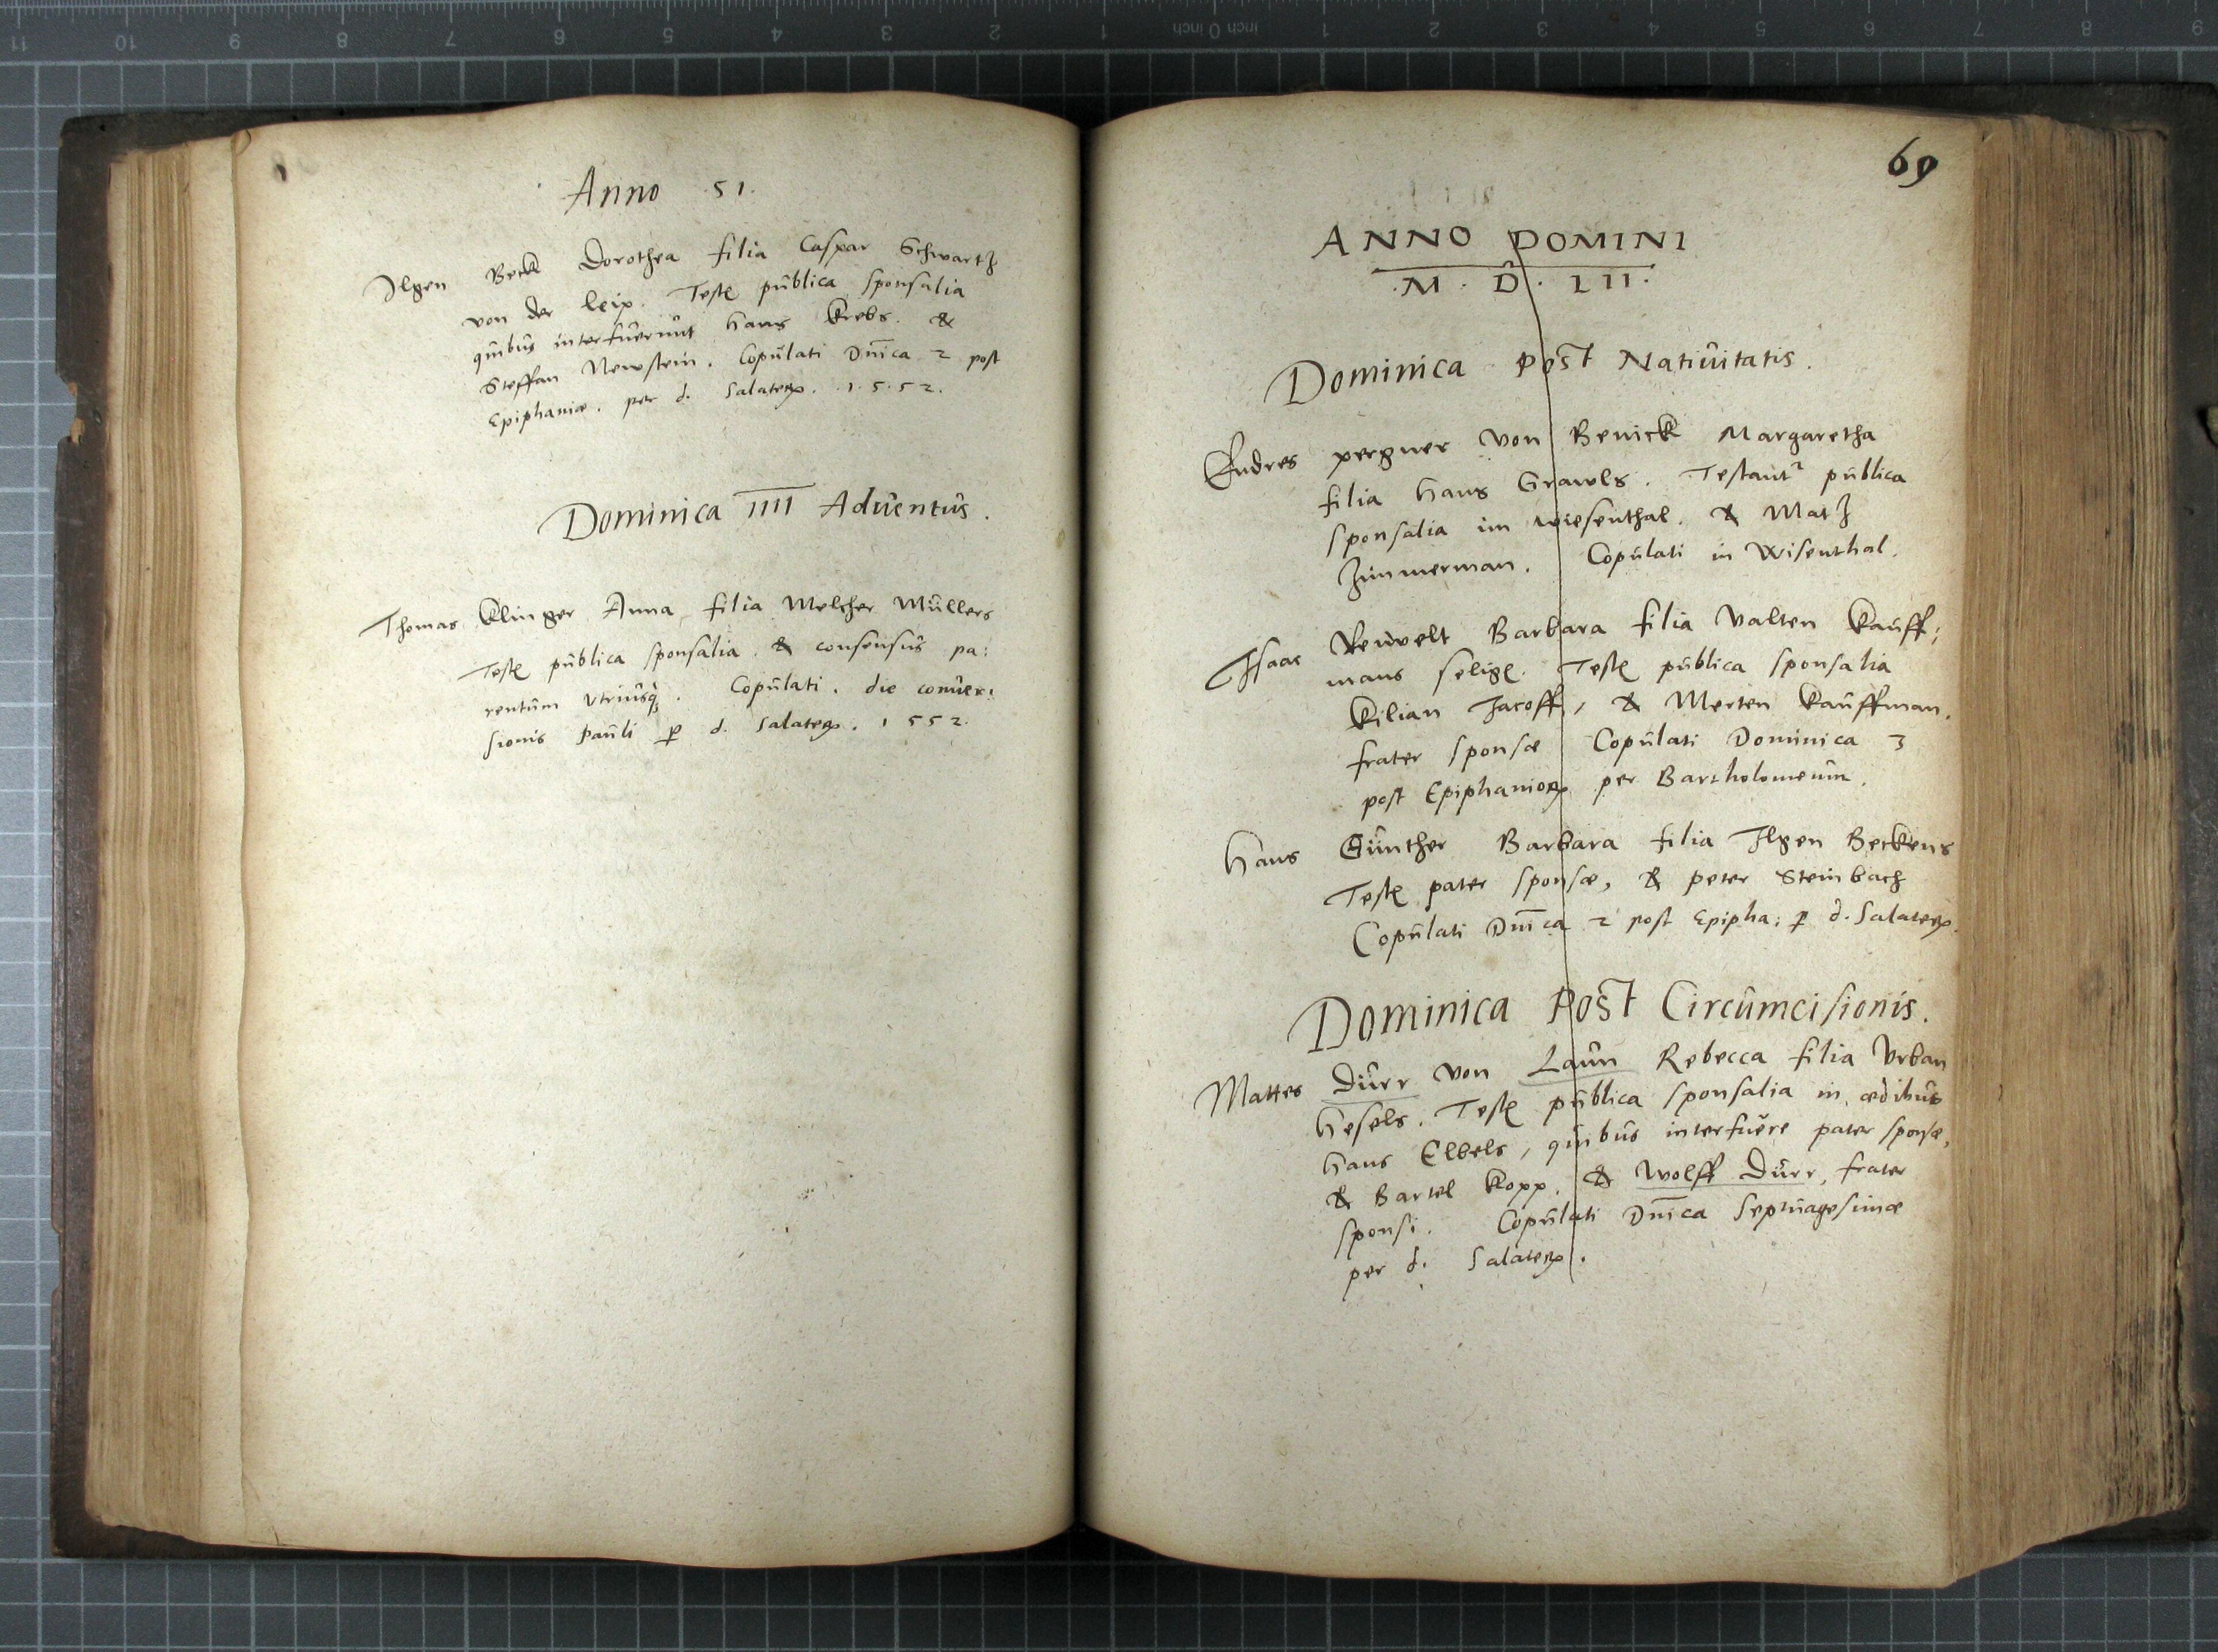 Anno 51.
Ilgen Beck Dorothea filia Caspar Schwartz
von der leip. Teste publica sponsalia
quibus interfuerunt Hans Krebs. &
Steffan Newstein. Copulati Dnica 2 post
Epiphaniæ. per d. Salater. 1.5.52.
Dominica IIII Aduentus.
Thomas Klinger Anna filia Melcher Müllers
Teste publica sponsalia & consensus pa:
rentum vtriusq. Copulati. die conuer:
sionis Pauli p d. Salater. 1552.
69
ANNO DOMINI
.M.D.LII.
Dominica Post Natiuitatis.
Endres pergner von Benick Margaretha
filia Hans Grawls. Testantr publica
sponsalia im wiesenthal. & Matz
Zimmerman. Copulati in Wisenthal.
Isaac Reuvelt Barbara filia Valten Kauff:
mans selige. Teste publica sponsalia
Kilian Jacoff, & Merten Kauffman.
frater sponsæ Copulati Dominica 3
post Epiphanior per Bartholomeum.
Hans Günther Barbara filia Ilgen Beckens
Teste pater sponsæ, & peter Steinbach
Copulati Dnica 2 post Epipha: p d. Salater.
Dominica Post Circumcisionis.
Mattes Dürr von Laun Rebecca filia Vrban
Hesels. Teste publica sponsalia in ædibus
Hans Elbels, quibus interfuere pater sponsæ,
& Bartel Kopp. & Wolff Dürr, frater
sponsi. Copulati Dnica Septuagesimæ
per d. Salater.